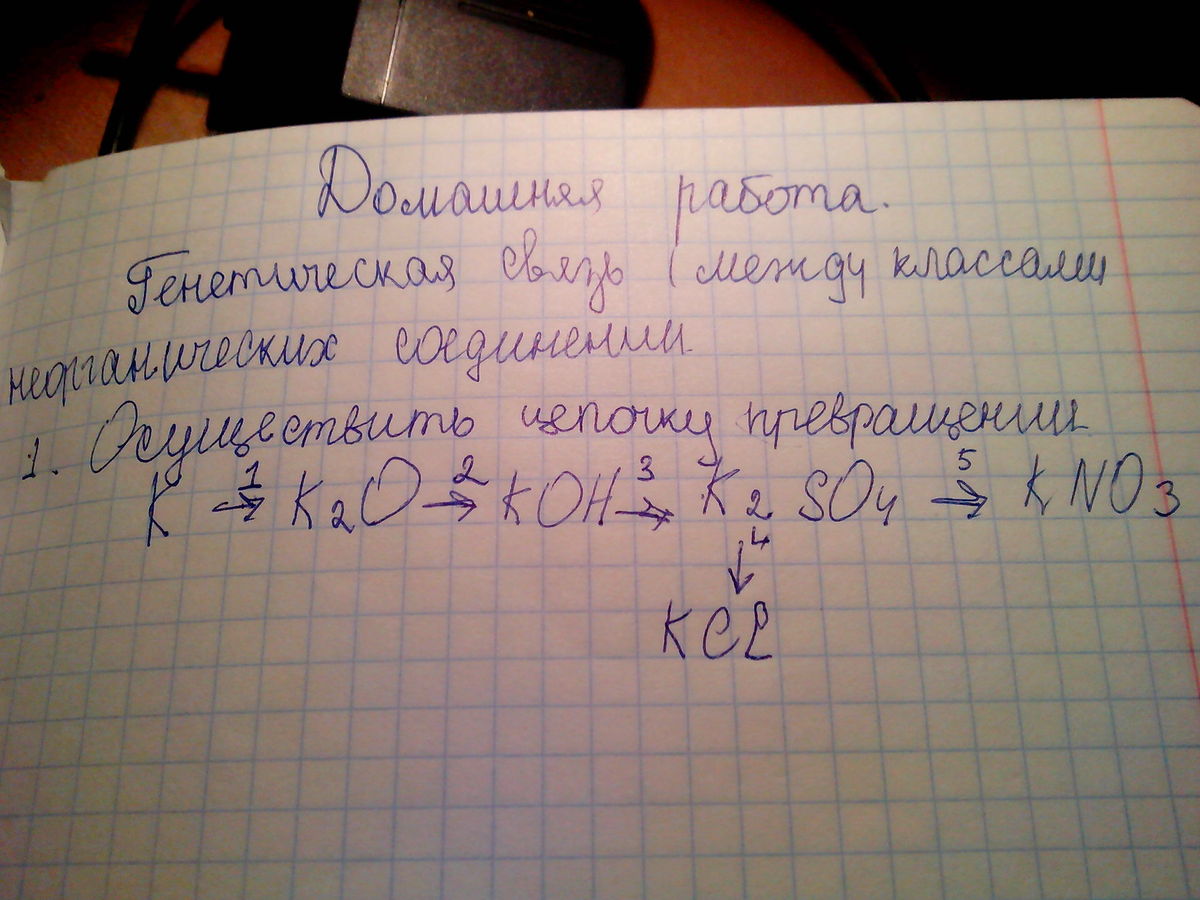 Домашняя работа.
Генетическая связь (между классами
неорганических соединении
1. Осуществить цепочку превращении
K →1 K2O →2 KOH →3 K2SO4 →5 KNO3
↓4
KCl